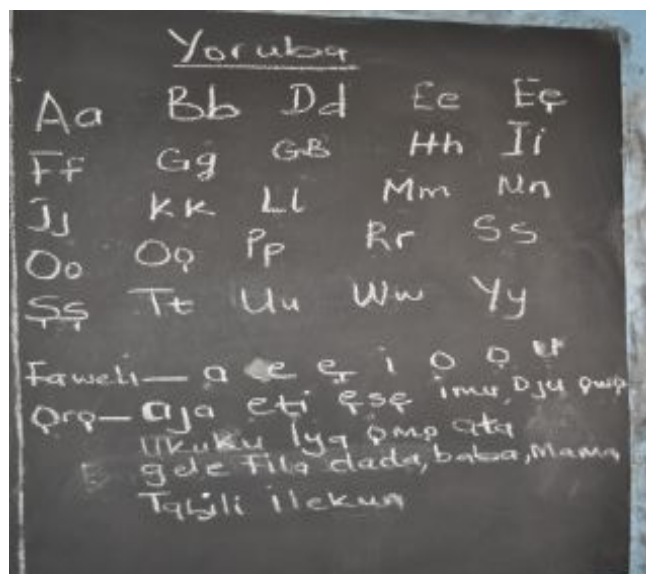 Yoruba
Aa Bb Dd Ee Eẹ
Ff Gg GB Hh Ii
Jj KK Ll Mm Nn
Oo Oọ Pp Rr Ss
Ṣṣ Tt Uu Ww Yy
Faweli — a e ẹ i o ọ u
Ọrọ — aja eti ẹsẹ imu, Oju ọwọ
Ukuku Iya ọmọ ata
gele Fila dada, baba, Mama
Tabili ilekun